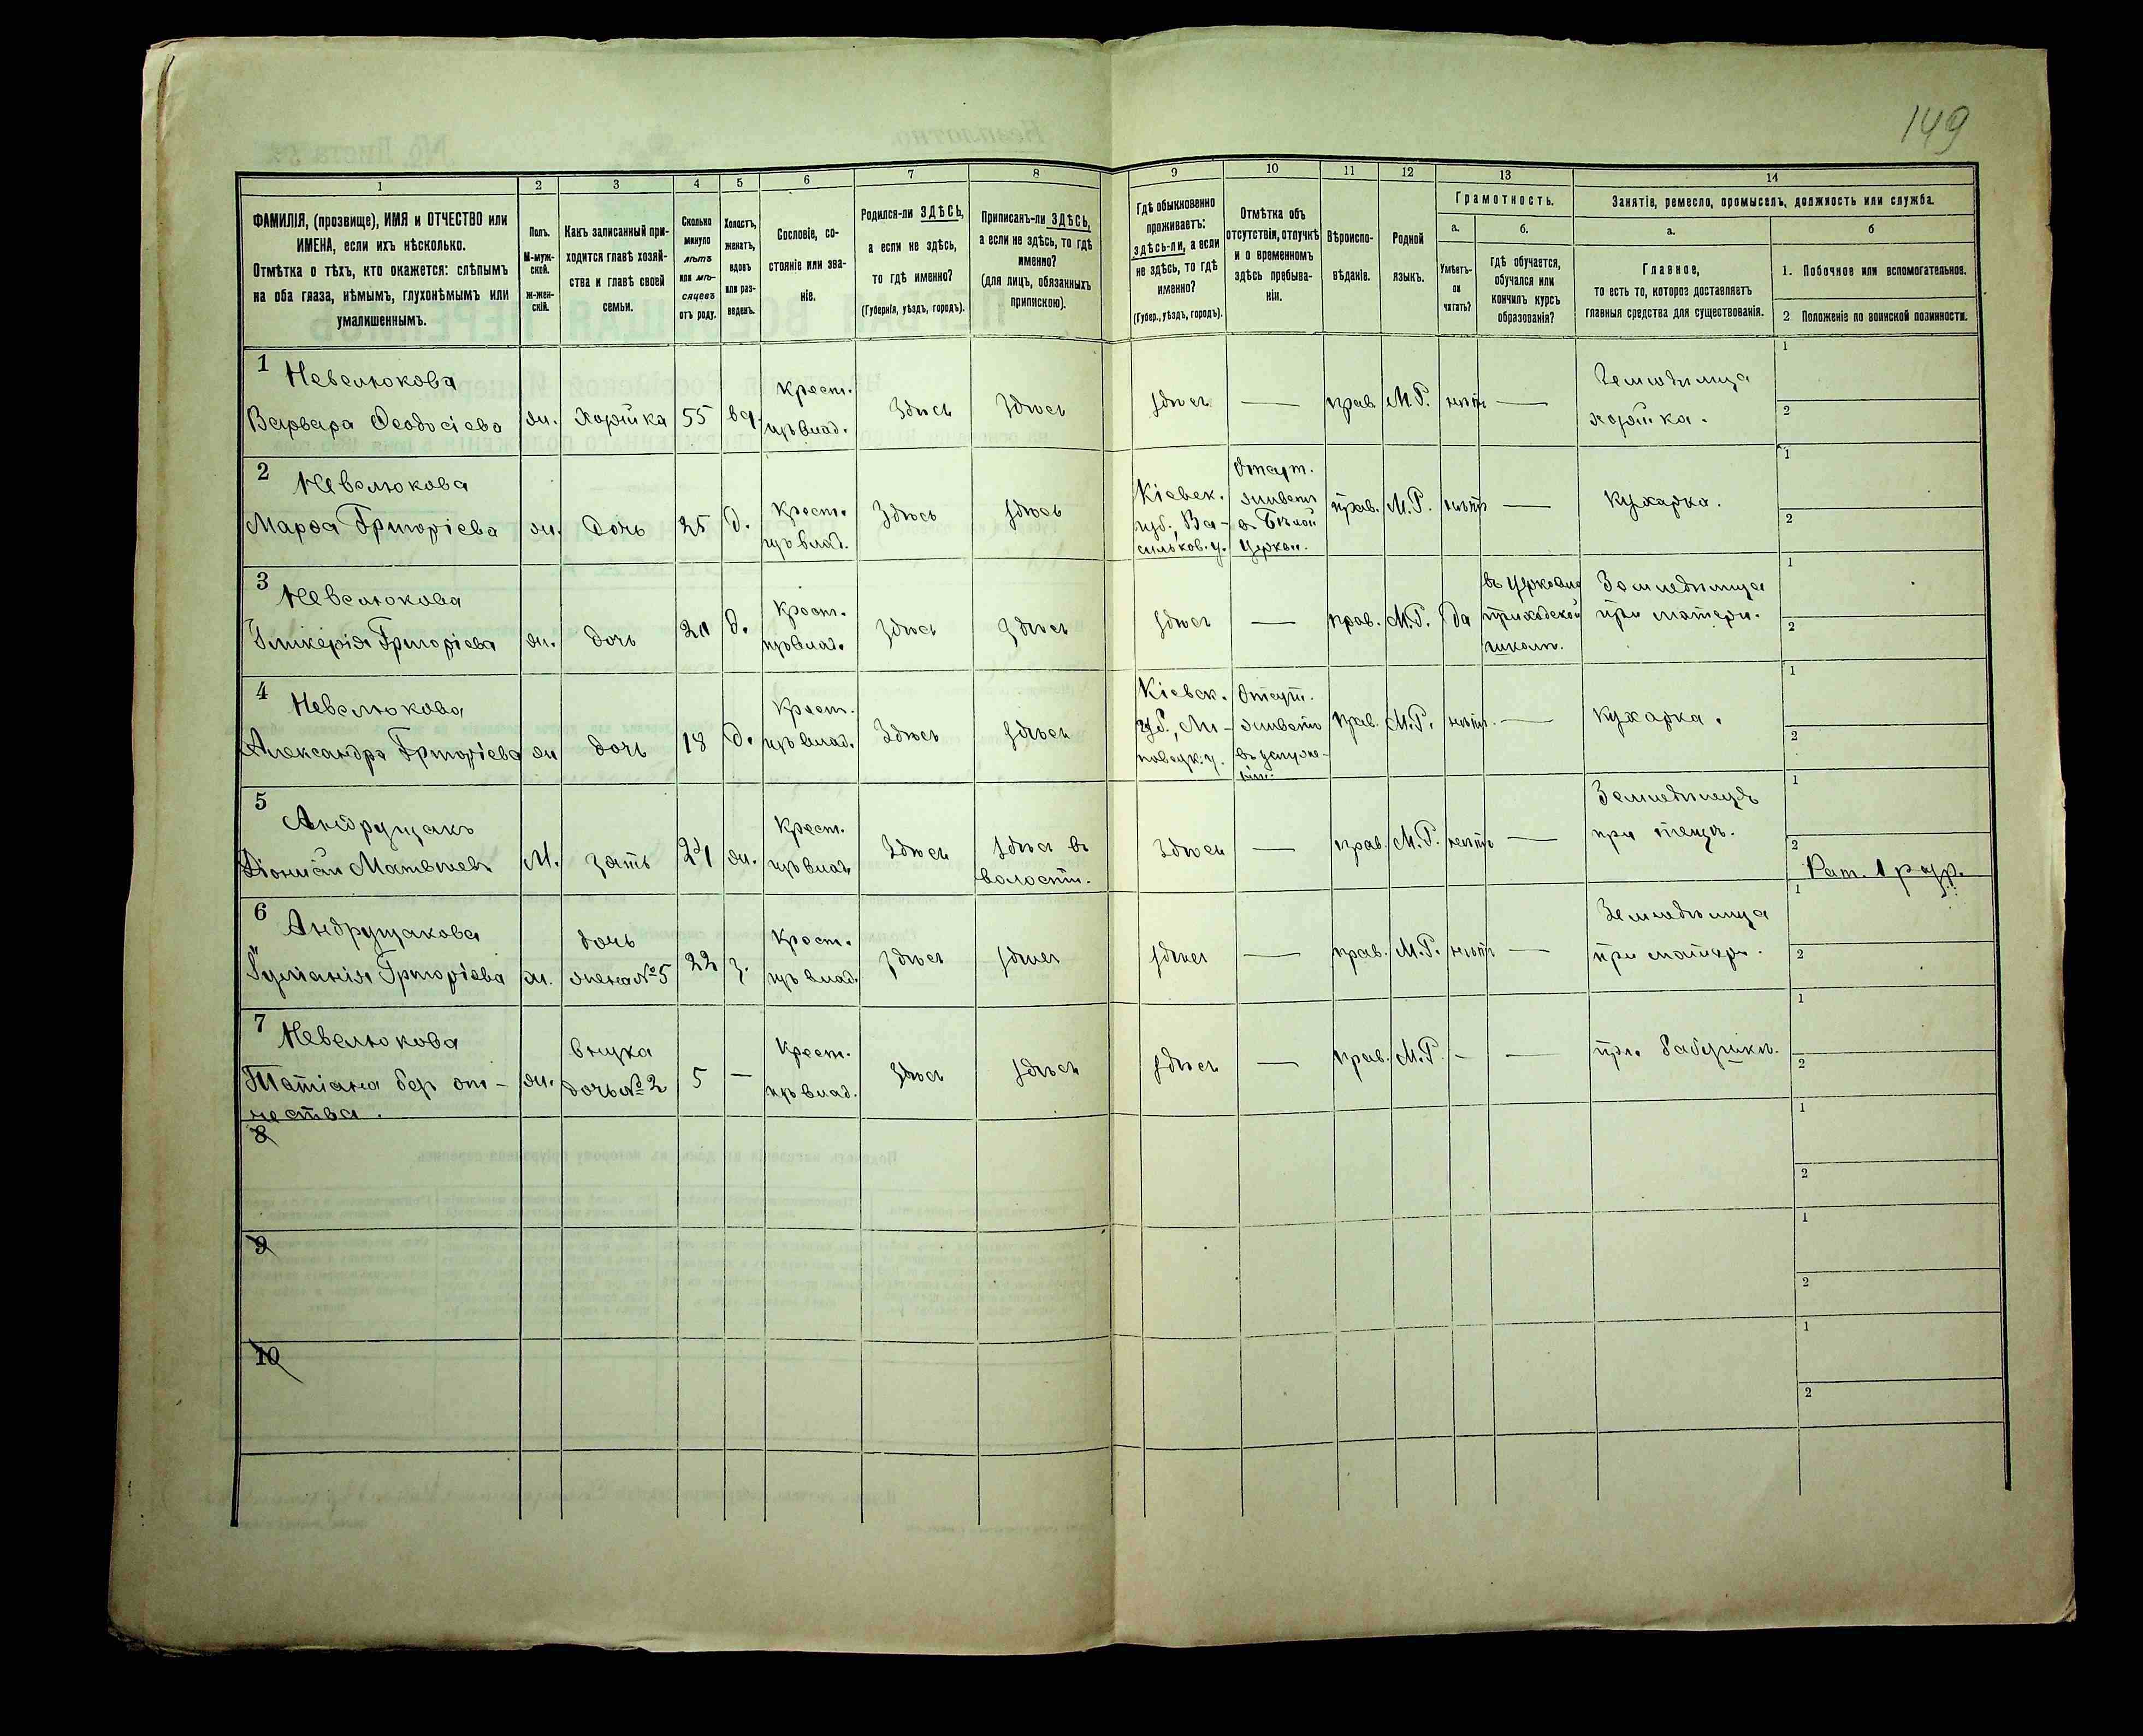 149
1 2 3 4 5 6 7 8 9 10 11 12 13 14
ФАМИЛІЯ, (прозвище), ИМЯ и ОТЧЕСТВО или
ИМЕНА, если ихъ нѣсколько.
Отмѣтка о тѣхъ, кто окажется: слѣпымъ
на оба глаза, нѣмымъ, глухонѣмымъ или
умалишеннымъ.
Полъ.
М-муж-
ской.
Ж-жен-
скій.
Какъ записанный при-
ходится главѣ хозяй-
ства и главѣ своей
семьи.
Сколько
минуло
лѣтъ
или мѣ-
сяцевъ
отъ роду.
Холостъ,
женатъ,
вдовъ
или раз-
веденъ.
Сословіе, со-
стояніе или зва-
ніе.
Родился-ли ЗДѢСЬ,
а если не здѣсь,
то гдѣ именно?
(Губернія, уѣздъ, городъ).
Приписанъ-ли ЗДѢСЬ,
а если не здѣсь, то гдѣ
именно?
(для лицъ, обязанныхъ
припискою).
Гдѣ обыкновенно
проживаетъ:
здѣсь-ли, а если
не здѣсь, то гдѣ
именно?
(Губер., уѣздъ, городъ).
Отмѣтка объ
отсутствіи, отлучкѣ
и о временномъ
здѣсь пребыва-
ніи.
Вѣроиспо-
вѣданіе.
Родной
языкъ.
Грамотность.
а.
Умѣетъ-
ли
читать?
б.
гдѣ обучается,
обучался или
кончилъ курсъ
образованія?
Занятіе, ремесло, промыселъ, должность или служба.
а.
Главное,
то есть то, которое доставляетъ
главныя средства для существованія.
б
1. Побочное или вспомогательное.
2 Положеніе по воинской повинности.
1 Невелюкова
Варвара Ѳеодосіева
ж.
Хозяйка
55
вд.
Крест.
изъ влад.
Здѣсь
Здѣсь
здѣсь
—
прав.
М.Р.
нѣтъ
—
Земледѣлица
хозяйка.
1
2
2 Невелюкова
Марѳа Григоріева
ж.
Дочь
25
д.
Крест.
изъ влад.
Здѣсь
здѣсь
Кіевск.
губ., Ва-
сильков. у.
Отсут.
живетъ
въ Бѣлой
Церкви.
прав.
М.Р.
нѣтъ
—
Кухарка.
1
2
3 Невелюкова
Гликерія Григоріева
ж.
дочь
20
д.
Крест.
изъ влад.
Здѣсь
Здѣсь
здѣсь
—
прав.
М.Р.
да
въ церковно
приходской
школѣ.
Земледѣлица
при матери.
1
2
4 Невелюкова
Александра Григоріева
ж
дочь
18
д.
Крест.
изъ влад.
Здѣсь
здѣсь
Кіевск.
губ., Ли-
повецк. у.
Отсут.
живетъ
прав.
М.Р.
нѣтъ.
—
Кухарка.
1
2
5 Андрущакъ
Матвѣевъ
М.
зять
24
ж.
Крест.
изъ влад.
Здѣсь
здѣсь въ
волости.
Здѣсь
—
прав.
М.Р.
нѣтъ
—
Земледѣлецъ
при тещѣ.
1
2
Рат. 1 разр.
6 Андрущакова
Григоріева
ж.
дочь
жена №5
22
з.
Крест.
изъ влад.
здѣсь
здѣсь
здѣсь
—
прав.
М.Р.
нѣтъ
—
Земледѣлица
при матери.
1
2
7 Невелюкова
Татіана без от-
чества.
ж.
внучка
дочь №2
5
—
Крест.
изъ влад.
здѣсь
здѣсь
здѣсь
—
прав.
М.Р.
—
—
при бабушкѣ.
1
2
8
1
2
9
1
2
10
1
2